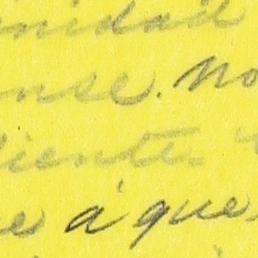 nidad
nse. No
diente.
e a que